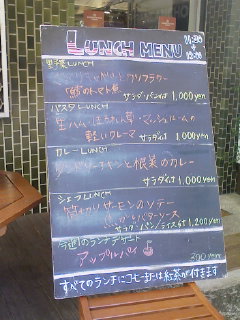 LUNCH MENU
野菜LUNCH
鯖のトマト煮
サラダ・パン付き 1,000yen
パスタLUNCH
生ハム・ほうれん草・マッシュルームの
軽いクレーマ サラダ付き 1,000yen
カレーLUNCH
タンドリーチキンと根菜のカレー
サラダ付き 1,000yen
シェフLUNCH
サーモンのソテー
バターソース
サラダ・パン/ライス付き 1,200yen
今週のランチデザート
アップルパイ
300yen
すべてのランチにコーヒーまたは紅茶が付きます